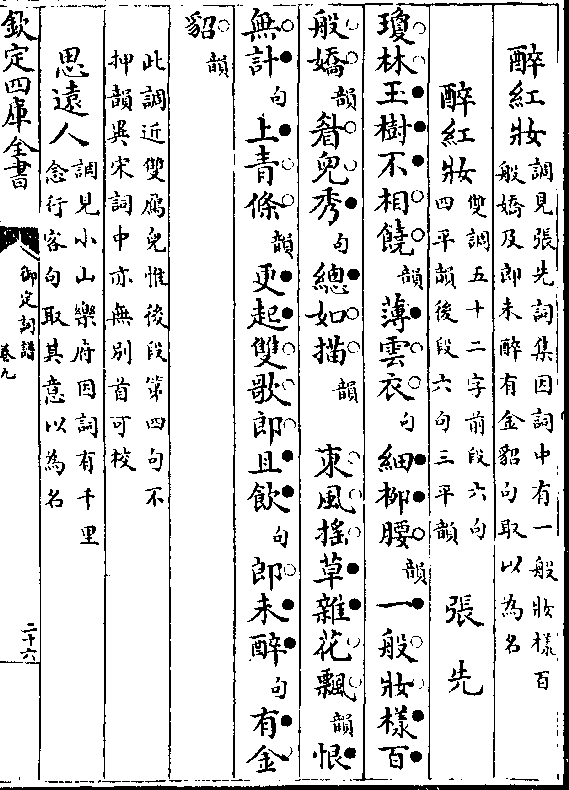 醉紅妝調見張先詞集因詞中有一般妝樣百
般嬌及郎未醉有金貂句取以為名
醉紅妝雙調五十二字前段六句
四平韻後段六句三平韻 張先
瓊林玉樹不相饒韻薄雲衣句細柳腰韻一般妝樣百
般嬌韻眉兒秀句總如描韻 東風搖草雜花飄韻恨
無計句上青條韻更起雙歌郎且飲句郎未醉句有金
貂韻
此調近雙鴈兒惟後段第四句不
押韻異宋詞中亦無別首可校
思遠人調見小山樂府因詞有千里
念行客句取其意以為名
欽定四庫全書
御定詞譜
卷九
二十六